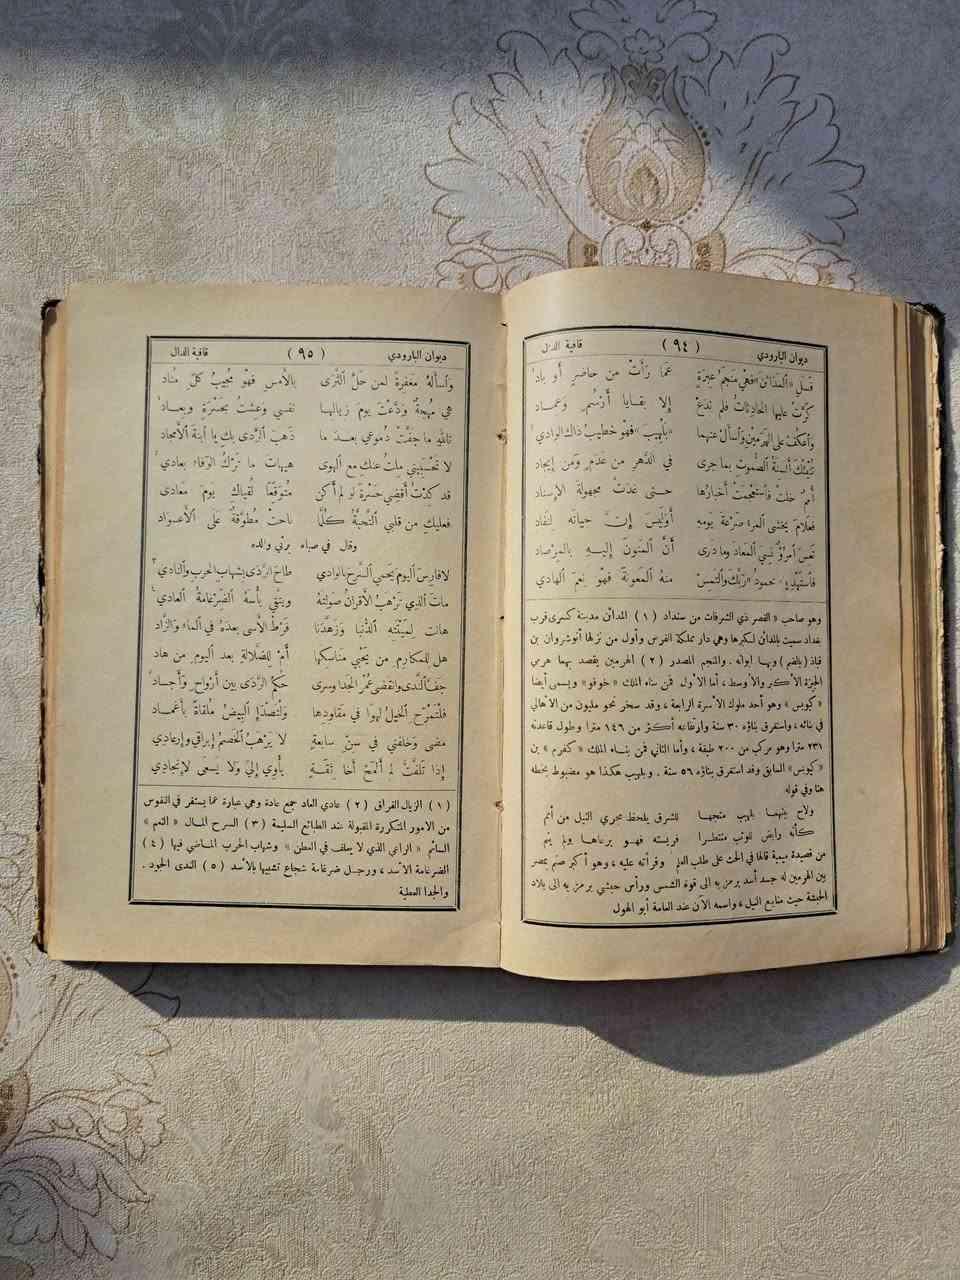 ديوان البارودي ( ٩٤ ) قافية الدال
فَسَلِ «المدَائنَ» فهْيَ مَنجَمُ عِبرَةٍ عَمَّا رَأَتْ من حاضرٍ أو بادِ
كَرَّتْ عليها الحَادِثاتُ فلم تَدَعْ إلا بقايا أَرْسُمٍ وعمادِ
وَاعكُفْ على الهَرَمَيْنِ وَاسأَلْ عنهما «بَلْهِيبَ» فهْوَ خطيبُ ذاك الوادي
تُنْبِئْكَ أَلسِنَةُ الصُّموتِ بما جرى في الدَّهرِ من عَدَمٍ ومن إيجادِ
أُمَمٌ خلتْ فاستَعْجَمَتْ أخبارُها حتى غدَتْ مجهولةَ الإسنادِ
فعلامَ يخشى المرءُ صَرْعَةَ يومِهِ أَوَلَيْسَ أَنَّ حياتَه لِنَفَادِ
تَعِسَ امرُؤٌ نَسِيَ المَعَادَ وما دَرَى أَنَّ المَنُونَ إليهِ بالمِرْصادِ
فاستَهْدِ يا «محمودُ» رَبَّكَ والتمِسْ منهُ المَعُونَةَ فهْوَ نِعمَ الهادي
وهو صاحب « القصر ذي الشرفات من سنداد ( ١ ) المدائن مدينة كسرى قرب
بغداد سميت بالمدائن لكبرها وهي دار مملكة الفرس وأول من نزلها أنوشروان بن
قباذ ( بالضم ) وبها ايوانه . والنجم المصدر ( ٢ ) الهرمين يقصد بهما هرمي
الجيزة الاكبر والاوسط ، أما الأول فمن بناء الملك « خوفو » ويسمى أيضا
« كيوبس » وهو أحد ملوك الأسرة الرابعة ، وقد سخر نحو مليون من الأهالي
في بنائه ، واستغرق بناؤه ٣٠ سنة وارتفاعه أكثر من ١٤٦ مترا وطول قاعدته
٢٣١ مترا وهو مركب من ٢٠٠ طبقة ، وأما الثاني فمن بناء الملك « كفرم » بن
« كيوبس » السابق وقد استغرق بناؤه ٥٦ سنة . وبلهيب هكذا هو مضبوط بخطه
هنا وفي قوله
ولاح بينهما بلهيب متجها للشرق يلحظ مجرى النيل من أمم
كأنه رابض للوثب منتظرا فريسته فهو يرعاها ولم ينم
من قصيدة ميمية قالها في الحث على طلب العلم وقرأته عليه ، وهو أكبر صنم بمصر
بين الهرمين له جسد أسد يرمز به الى قوة الشمس ورأس حبشي يرمز به الى بلاد
الحبشة حيث منابع النيل ، واسمه الآن عند العامة أبو الهول
ديوان البارودي ( ٩٥ ) قافية الدال
وَاسألهُ مغفرةً لمن حَلَّ الثَّرَى بالأمسِ فهْوَ مُجيبُ كلِّ مُنادِ
هي مُهجةٌ وَدَّعْتُ يومَ زيالِها نفسي وعشتُ بحَسْرَةٍ وبعادِ
تاللهِ ما جفَّتْ دُموعي بعدَ ما ذهبَ الرَّدَى بكِ يا ابنةَ الأمجادِ
لا تَحْسَبيني مِلتُ عنكِ مع الهوى هيهاتَ ما تَرْكُ الوَفاءِ بعادي
قد كِدْتُ أقضي حَسْرَةً لو لم أكن مُتوَقِّعًا لُقياكِ يومَ مَعادي
فعليكِ من قلبي التَّحيَّةُ كلَّما ناحَتْ مُطَوَّقَةٌ على الأعوادِ
وقال في صباه يرثي والده
لا فارسَ اليومَ يَحمي السَّرحَ بالوادي طاحَ الرَّدَى بشِهابِ الحربِ والنادي
ماتَ الَّذِي تَرْهَبُ الأَقرانُ صولتَهُ ويتَّقي بأسَهُ الضِّرْغامةُ العادي
هانت لِميتَتِهِ الدُّنيا وزَهَّدَنا فَرْطُ الأَسى بعدَهُ في الماءِ والزَّادِ
هل للمكارمِ من يُحْيي مناسكَها أمْ للضَّلالةِ بعد اليومِ من هادِ
جَفَّ الندى وانقضى عُمرُ الجدا وسرى حكمُ الرَّدَى بين أرْواحٍ وأجسادِ
فلتَمْرَحِ الخيلُ لهوًا في مقاودِها ولتصدَإِ البيضُ مُلقاةً بأغمادِ
مضى وخلَّفني في سِنِّ سابعةٍ لا يَرهَبُ الخصمُ إبراقي وإرعادي
إذا تلفَّتُّ لم ألمَحْ أخا ثِقَةٍ يأوي إليَّ ولا يَسعَى لإنجادي
( ١ ) الزيال الفراق ( ٢ ) عادي العاد جمع عادة وهي عبارة عما يستقر في النفوس
من الامور المتكررة المقبولة عند الطبائع السليمة ( ٣ ) السرح المال « النعم »
السائم « الراعي الذي لا يعلف في العطن » وشهاب الحرب الماضي فيها ( ٤ )
الضرغامة الأسد ، ورجل ضرغامة شجاع تشبيها بالأسد ( ٥ ) الندى الجود .
والجدا العطية